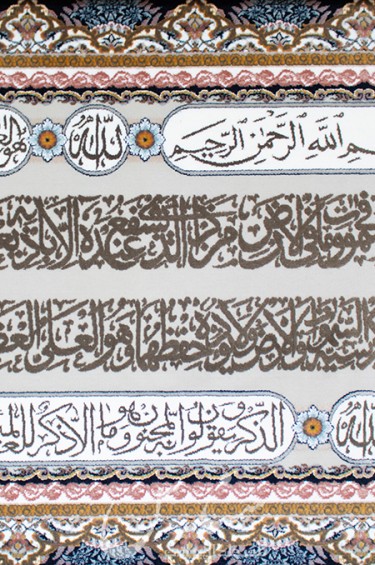 الله
ـم الله الرحمن الرحيم
السموات وما فى الارض من ذا الذى يشفع عنده الا باذنه يعـ
كرسيه السموات والارض ولا يؤده حفظهما وهو العلى العظـ
الذكر ويقولون انه لمجنون وما هو الا ذكر للعالميـ
الله